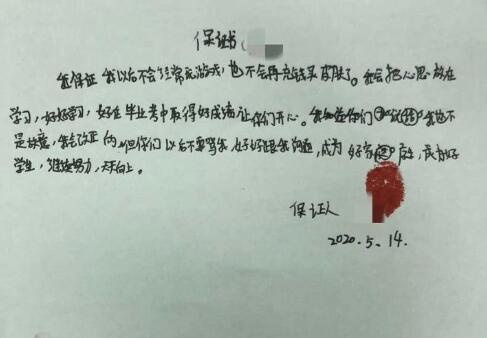 保证书
我保证我以后不会经常玩游戏,也不会再充钱买皮肤了。我会把心思放在
学习,好好学习,好在毕业考中取得好成绩让你们开心。我知道你们 我也不
是故意,我会改正的,但你们以后不要骂我,好好跟我沟通,成为好家 ,成为好
学生,继续努力,天天向上。
保证人
2020.5.14.